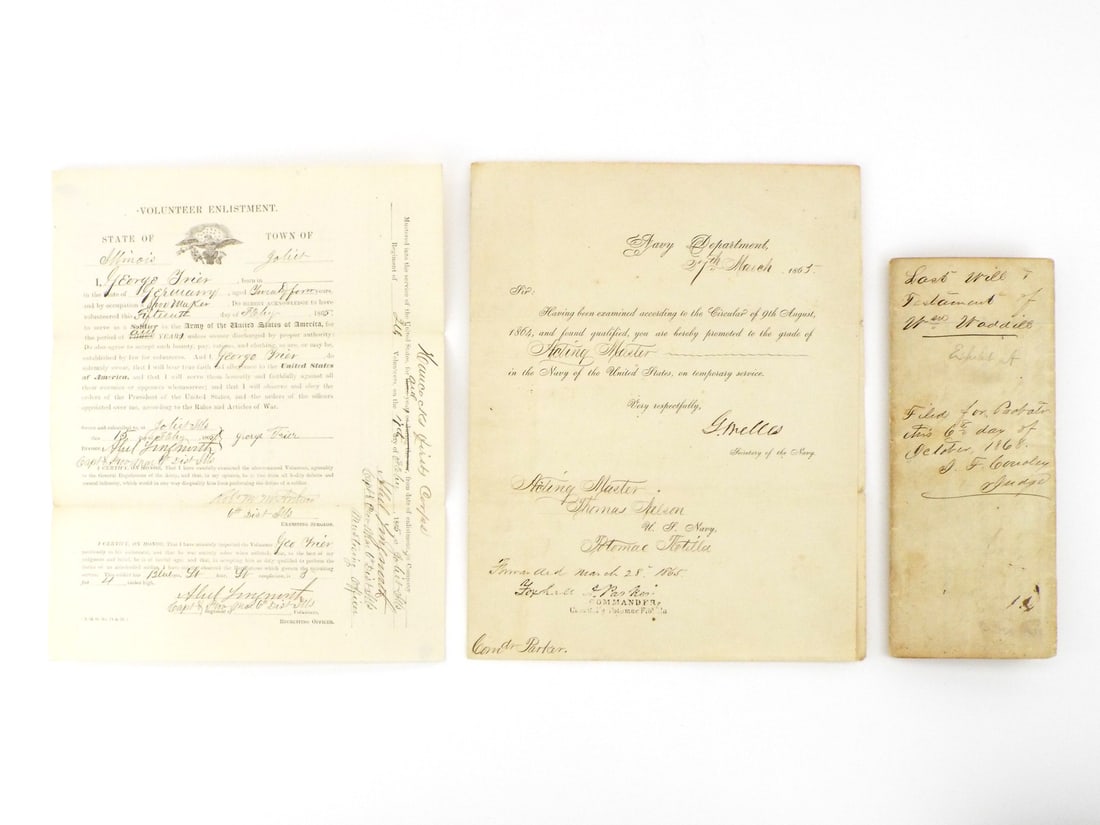 VOLUNTEER ENLISTMENT.
STATE OF TOWN OF
Illinois Joliet
I, George Trier born in
in the State of Germany, aged years,
and by occupation a Shoe Maker, Do HEREBY ACKNOWLEDGE to have
volunteered this fifteenth day of Feby 1865
to serve as a Soldier in the Army of the United States of America, for
the period of YEARS, unless sooner discharged by proper authority:
Do also agree to accept such bounty, pay, rations, and clothing, as are, or may be,
established by law for volunteers. And I, George Trier, do
solemnly swear, that I will bear true faith and allegiance to the United States
of America, and that I will serve them honestly and faithfully against all
their enemies or opposers whomsoever; and that I will observe and obey the
orders of the President of the United States, and the orders of the officers
appointed over me, according to the Rules and Articles of War.
Sworn and subscribed to, at Joliet Ills
this 15 day of Feby 1865 George Trier
BEFORE Abel Longworth
Capt & Pro Mar 6th Dist Ills
I CERTIFY, ON HONOR, That I have carefully examined the above-named Volunteer, agreeably
to the General Regulations of the Army, and that, in my opinion, he is free from all bodily defects and
mental infirmity, which would in any way disqualify him from performing the duties of a soldier.
6th Dist Ills
EXAMINING SURGEON.
I CERTIFY, ON HONOR, That I have minutely inspected the Volunteer Geo Trier
previously to his enlistment, and that he was entirely sober when enlisted; that, to the best of my
judgment and belief, he is of lawful age; and that, in accepting him as duly qualified to perform the
duties of an able-bodied soldier, I have strictly observed the Regulations which govern the recruiting
service. This soldier has Blue eyes, hair, complexion, is
feet inches high.
Abel Longworth
Capt & Pro Mar 6th Dist Ills
Regiment Volunteers,
RECRUITING OFFICER.
Hancocks First Corps
Mustered into the service of the United States, for from date of enlistment, in Company
Regiment of Volunteers, on the day of Feby 1865, at Joliet Ills
Abel Longworth
Capt & Pro Mar 6th Dist Ills
Mustering Officer
Navy Department,
27th March 1865.
Sir:
Having been examined according to the Circular of 9th August,
1864, and found qualified, you are hereby promoted to the grade of
Acting Master
in the Navy of the United States, on temporary service.
Very respectfully,
G. Welles
Secretary of the Navy.
Acting Master
Thomas Nelson
U. S. Navy,
Potomac Flotilla
Forwarded March 28th 1865
Foxhall A. Parker
COMMANDER
Comd'g Potomac Flotilla
Comdr Parker.
Last Will &
Testament of
Wm Waddill
Exhibit A
Filed for Probate
this 6th day of
October, 1868.
Judge